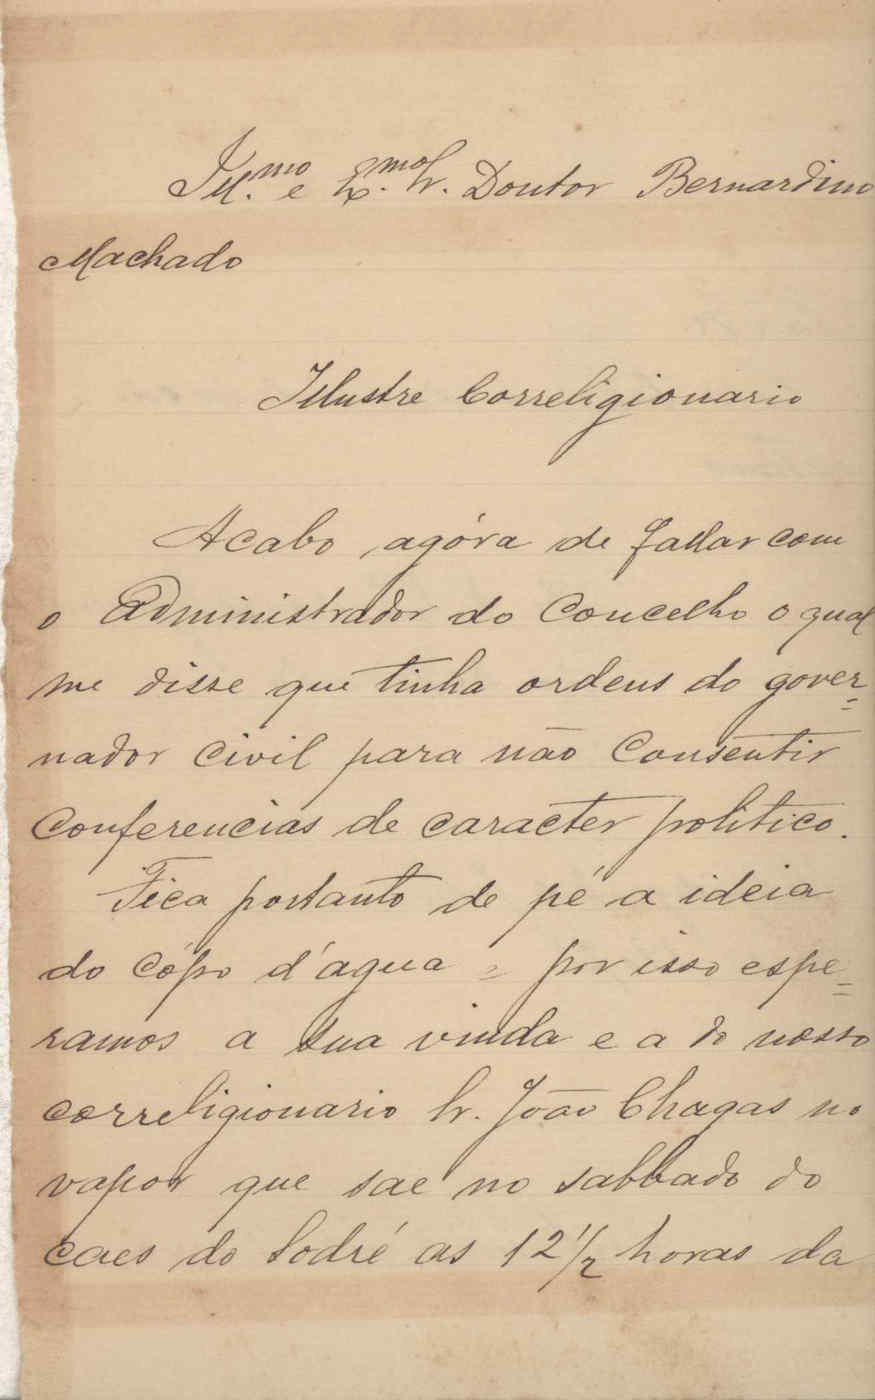 Ill.mo e Ex.mo Sr. Doutor Bernardino
Machado
Illustre Correligionario
Acabo agóra de fallar com
o Administrador do Concelho o qual
me disse que tinha ordens do gover=
nador Civil para não Consentir
Conferencias de caracter politico.
Fica portanto de pé a ideia
do Cópo d'agua = por isso espe=
ramos a sua vinda e a do nosso
correligionario Sr. João Chagas no
vapor que sae no sabbado do
caes do Sodré as 12 1/2 horas da